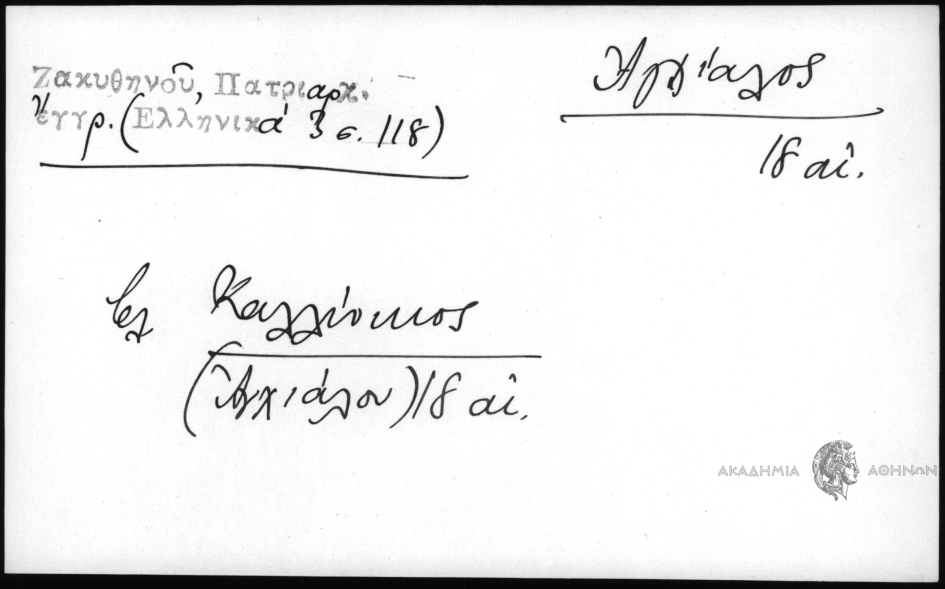 Ζακυθηνοῦ, Πατριαρχ.
ἔγγρ. (Ἑλληνικά 3 σ. 118)
Ἀγχίαλος
18 αἰ.
βλ Καλλίνικος
(Ἀγχιάλου) 18 αἰ.
ΑΚΑΔΗΜΙΑ ΑΘΗΝΩΝ